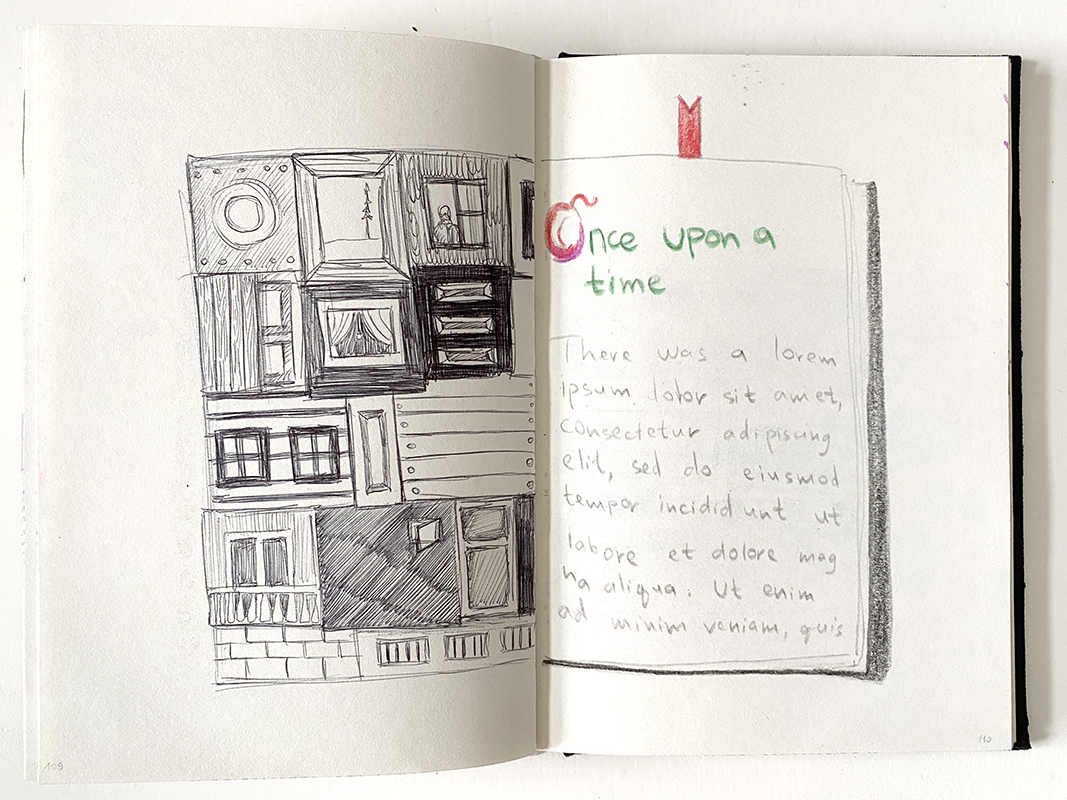 Once upon a
time
There was a lorem
ipsum dolor sit amet,
consectetur adipiscing
elit, sed do eiusmod
tempor incididunt ut
labore et dolore mag
na aliqua. Ut enim
ad minim veniam, quis
109
110